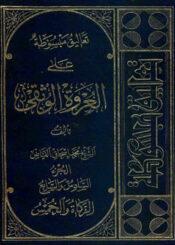 تعاليق مبسوطة
على
العروة الوثقى
تأليف
الشيخ محمد إسحاق الفياض
الجزء
السادس والسابع
الزكاة والخمس